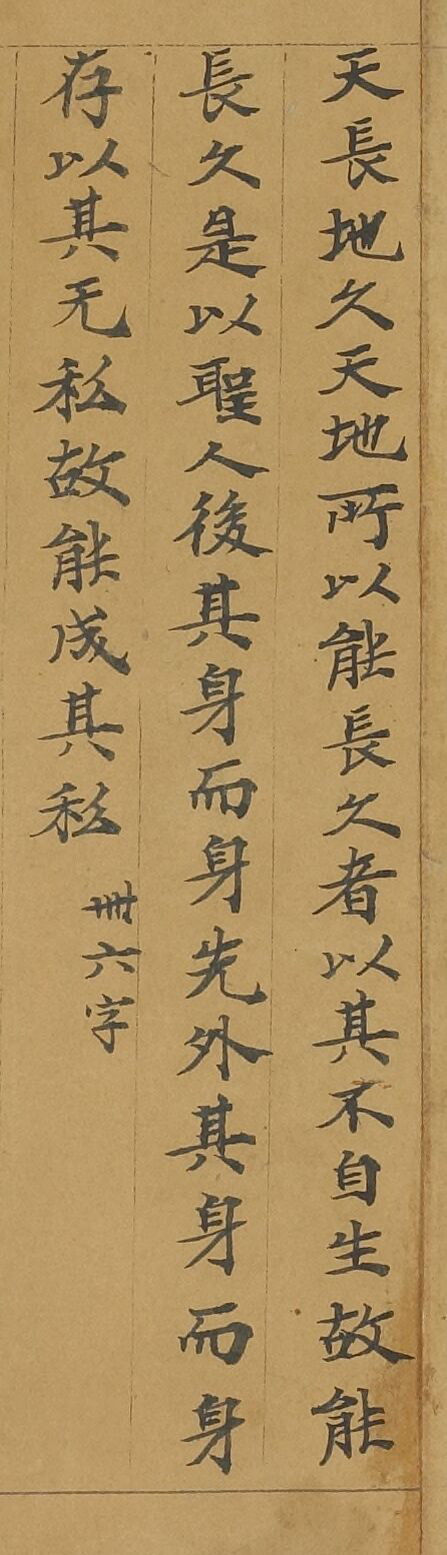 天長地久天地所以能長久者以其不自生故能
長久是以聖人後其身而身先外其身而身
存以其无私故能成其私
卌六字